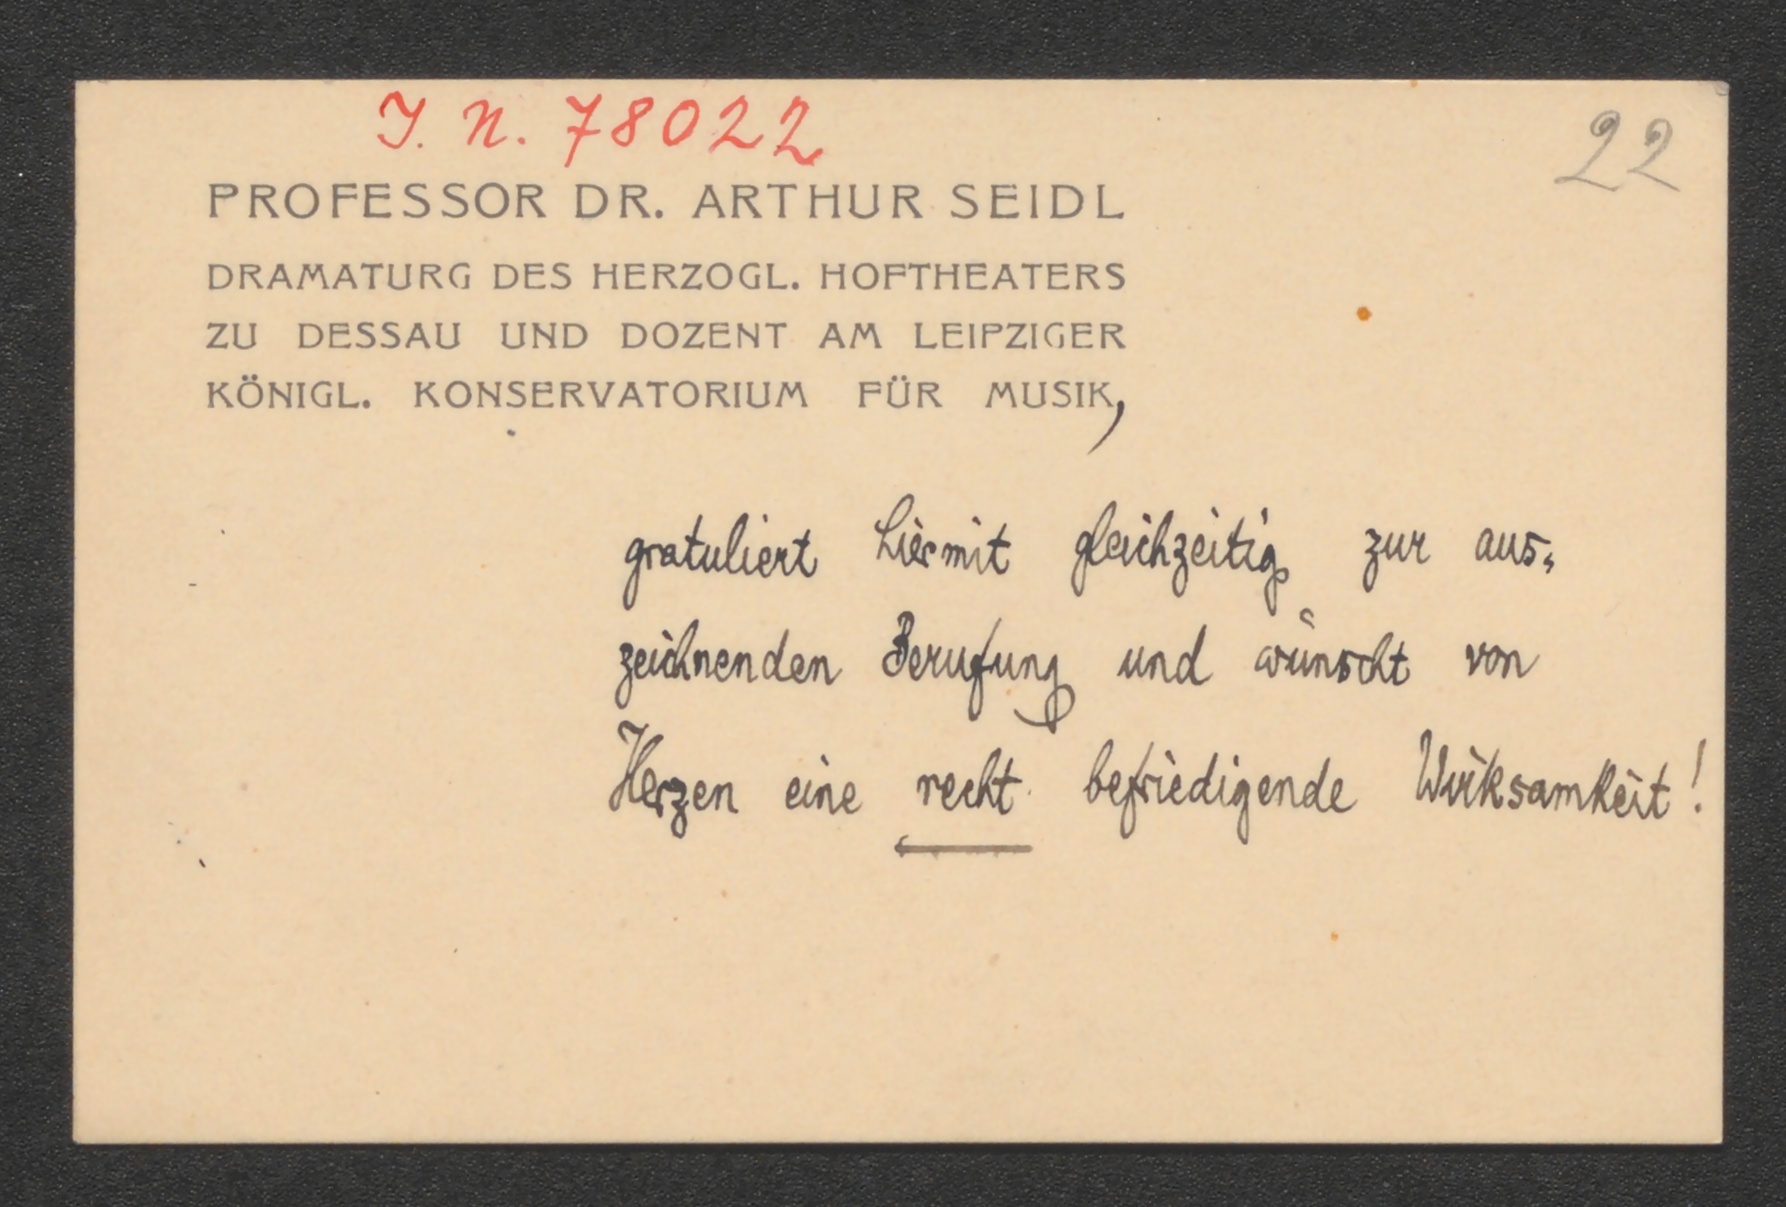 J. N. 78022
22
PROFESSOR DR. ARTHUR SEIDL
DRAMATURG DES HERZOGL. HOFTHEATERS
ZU DESSAU UND DOZENT AM LEIPZIGER
KÖNIGL. KONSERVATORIUM FÜR MUSIK,
gratuliert hiermit gleichzeitig zur aus-
zeichnenden Berufung und wünscht von
Herzen eine recht befriedigende Wirksamkeit!